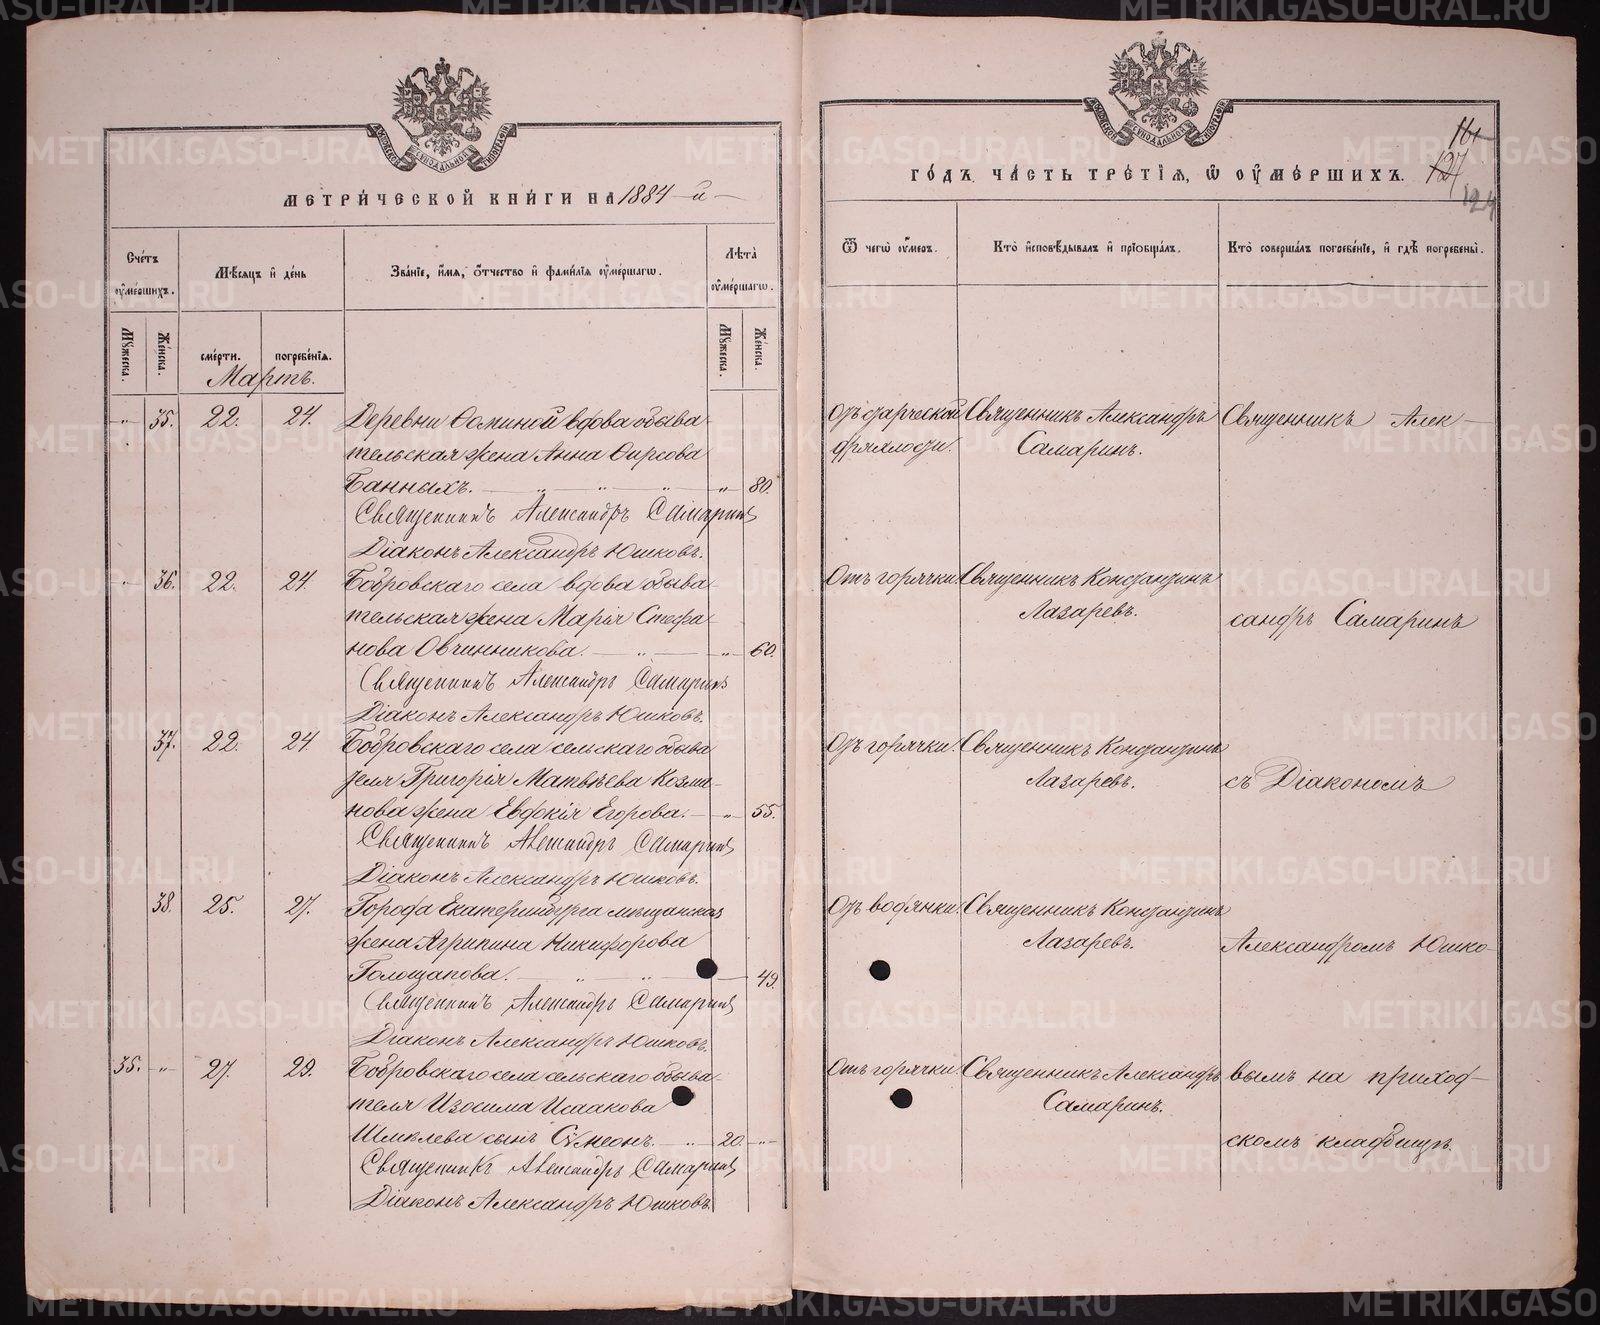 МЕТРИ́ЧЕСКОЙ КНИ́ГИ НА 1884-й
Сче́тъ ᲂу҆ме́ршихъ.
Мѣ́сяцъ и҆ де́нь
Зва́нїе, и҆́мя, ѻ҆́тчество и҆ фами́лїя ᲂу҆ме́ршагѡ.
Лѣ́та ᲂу҆ме́ршагѡ.
Мꙋ́жеска.
Же́нска.
сме́рти.
погребе́нїя.
Мꙋ́жеска.
Же́нска.
Мартъ.
„ 35. 22. 24. Деревни Ѳоминой вдова обыва-
тельская жена Анна Ѳирсова
Банныхъ. „ „ „ „ 80.
Священникъ Александръ Самаринъ
Діаконъ Александръ Юшковъ.
„ 36. 22. 24. Бобровскаго села вдова обыва-
тельская жена Марія Стефа-
нова Овчинникова. „ „ 60.
Священникъ Александръ Самаринъ
Діаконъ Александръ Юшковъ.
37. 22. 24. Бобровскаго села сельскаго обыва
теля Григорія Матвѣева Козми-
нова жена Евдокія Егорова. „ 55.
Священникъ Александръ Самаринъ
Діаконъ Александръ Юшковъ.
38. 25. 27. Города Екатеринбурга мѣщанская
жена Агрипина Никифорова
Голощапова. „ „ 49.
Священникъ Александръ Самаринъ
Діаконъ Александръ Юшковъ.
35. „ 27. 29. Бобровскаго села сельскаго обыва-
теля Изосима Исаакова
Шмелева сынъ Сѵмеонъ. „ 20. „
Священникъ Александръ Самаринъ
Діаконъ Александръ Юшковъ.
ГО́ДЪ ЧА́СТЬ ТРЕ́ТЇЯ, Ѡ҆ ОУ҆МЕ́РШИХЪ.
127
124
Ѿ чегѡ̀ ᲂу҆́меръ.
Кто̀ и҆сповѣ́дывалъ и҆ прїѻбща́лъ.
Кто̀ соверша́лъ погребе́нїе, и҆ гдѣ̀ погребены̀.
Отъ старческой Священникъ Александръ Священникъ Алек-
дряхлости. Самаринъ.
Отъ горячки. Священникъ Константинъ
Лазаревъ. сандръ Самаринъ
Отъ горячки. Священникъ Константинъ
Лазаревъ. съ Діакономъ
Отъ водянки. Священникъ Константинъ
Лазаревъ. Александромъ Юшко-
Отъ горячки. Священникъ Александръ вымъ на приход-
Самаринъ.
скомъ кладбищѣ.
METRIKI.GASO-URAL.RU